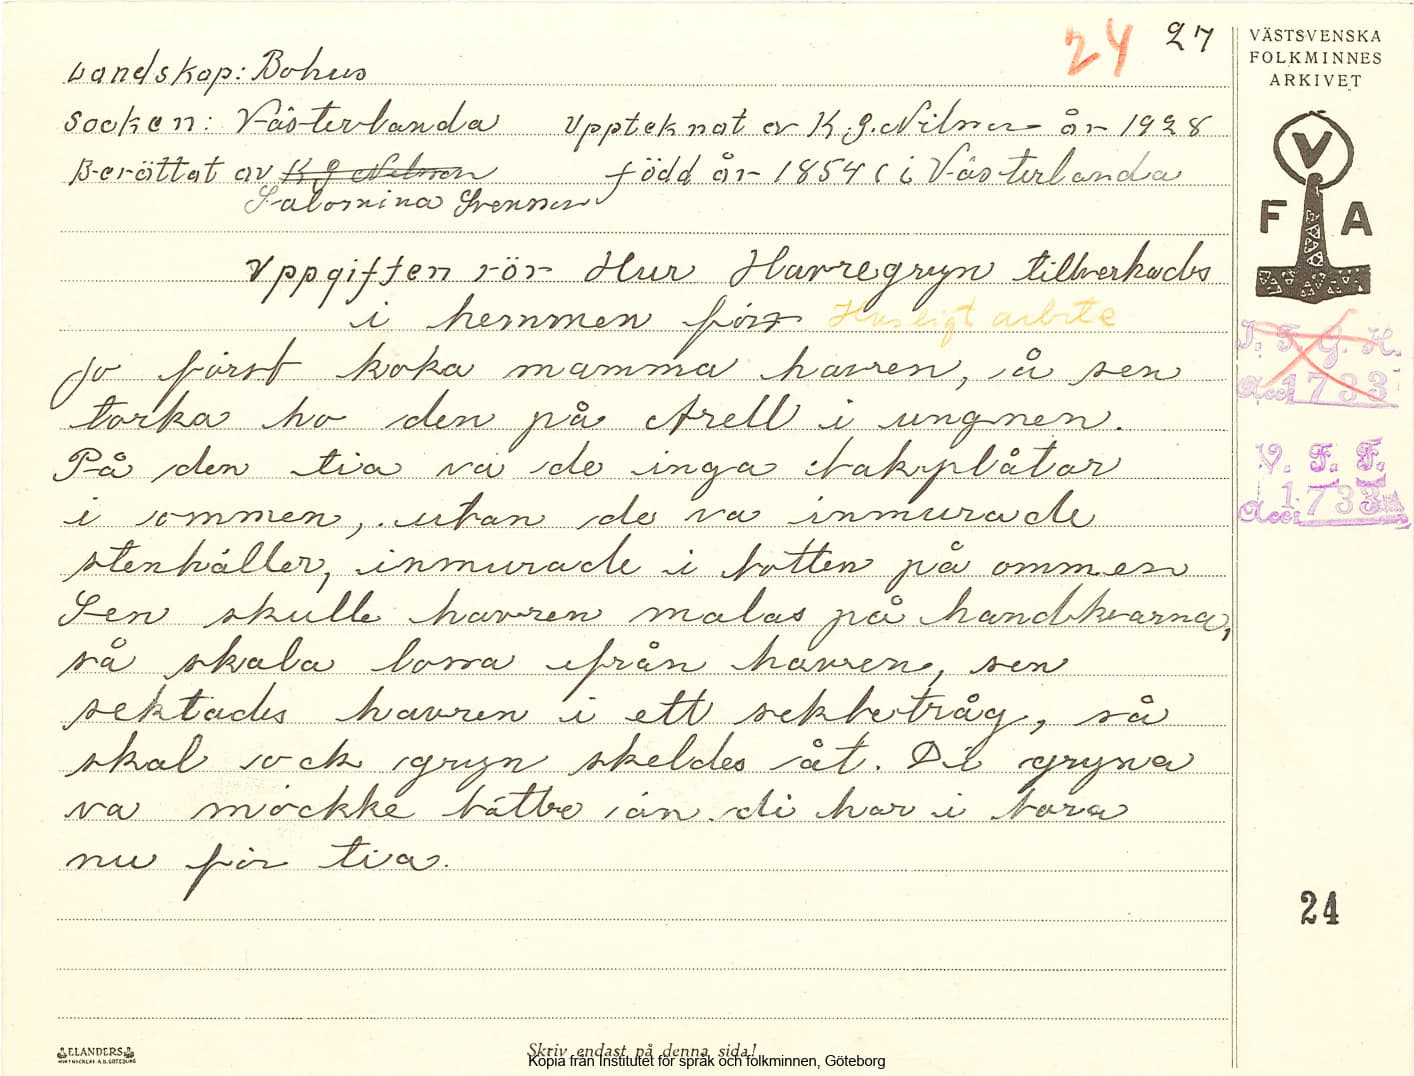 24 27
Landskap: Bohus
Socken: Västerlanda Upptecknat av K.G. Nilsson år 1928
Berättat av K G Nilsson född år 1854 i Västerlanda
Salomina Svensson
Uppgiften rör Hur Havregryn tillverkads
i hemmen förr Husligt arbete
Jo först koka mamma havren, å sen
torka ho den på Arell i ungnen.
På den tia va de inga bakplåtar
i ommen, utan de va inmurade
stenhäller, inmurade i botten på ommen
Sen skulle havren malas på handkvarna,
så skala lossa ifrån havren, sen
sektades havren i ett sektetråg, så
skal ock gryn skeldes åt. Di gryna
va möckke bättre än di har i bora
nu för tia.
VÄSTSVENSKA
FOLKMINNES
ARKIVET
V
F A
I. F. G. H.
Acc. 1733
V. F. F.
Acc. 1733
24
ELANDERS
Skriv endast på denna sida!
Kopia från Institutet för språk och folkminnen, Göteborg